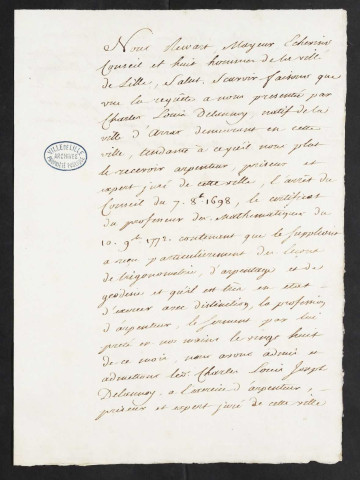 Nous Rewart, Mayeur Echevins
Conseil et huit hommes de la ville
de Lille, Salut. Scavoir faisons que
vue la requête a nous presentée par
Charles Louis Delaunay, natif de la
ville d'Arras demeurant en cette
ville, tendante a ce qu'il nous plut
le recevoir arpenteur, priseur et
expert juré de cette ville, l'arrêt du
Conseil du 7. 8.e 1698, le certificat
du professeur des Mathematiques du
10. 9.e 1772. contenant que le suppliant
a reçu particulierement des leçons
de trigonometrie, d'arpentage et de
geodesie et qu'il est très en etat
d'exercer avec distinction, la profession
d'arpenteur, le serment par lui
preté en nos mains le vingt huit
de ce mois, nous avons admis et
admettons led. Charles Louis Joseph
Delaunay, a l'exercice d'arpenteur,
priseur et expert juré de cette ville
VILLE DE LILLE
ARCHIVES
PROPRIÉTÉ PUBLIQUE